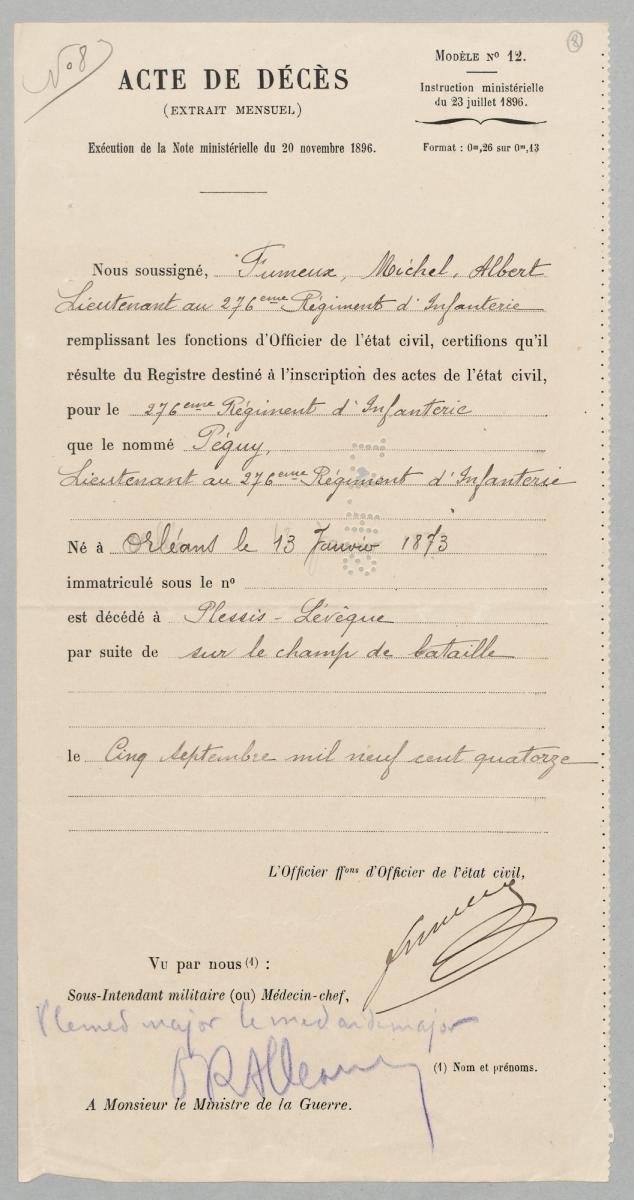 No 8
8
MODÈLE No 12.
ACTE DE DÉCÈS
Instruction ministérielle
du 23 juillet 1896.
(EXTRAIT MENSUEL)
Exécution de la Note ministérielle du 20 novembre 1896.
Format : 0m,26 sur 0m,13
Nous soussigné, Fumeux, Michel, Albert
Lieutenant au 276eme Régiment d'Infanterie
remplissant les fonctions d'Officier de l'état civil, certifions qu'il
résulte du Registre destiné à l'inscription des actes de l'état civil,
pour le 276eme Régiment d'Infanterie
que le nommé Péguy,
Lieutenant au 276eme Régiment d'Infanterie
Né à Orléans le 13 Janvier 1873
immatriculé sous le no
est décédé à Plessis-Lévêque
par suite de sur le champ de bataille
le Cinq Septembre mil neuf cent quatorze
L'Officier ffons d'Officier de l'état civil,
Vu par nous (1) :
Sous-Intendant militaire (ou) Médecin-chef,
major le med major
(1) Nom et prénoms.
A Monsieur le Ministre de la Guerre.